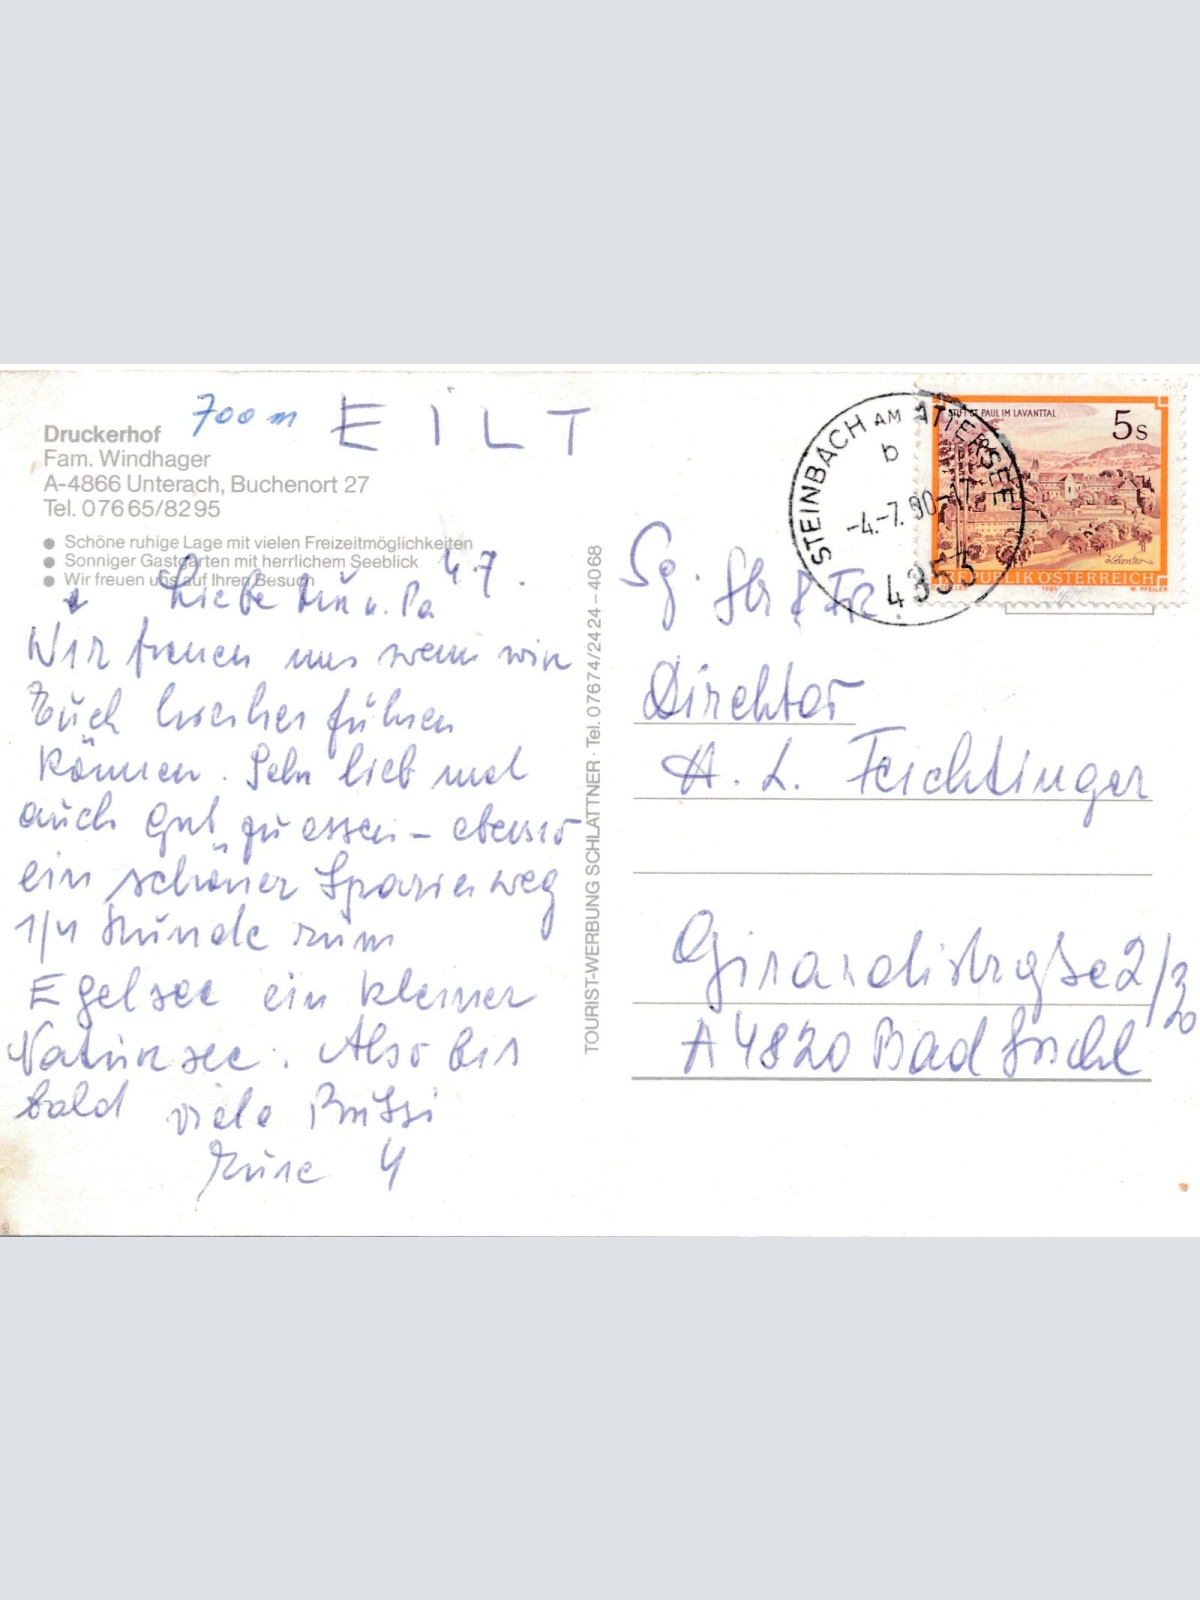 700 m EILT
Druckerhof
Fam. Windhager
A-4866 Unterach, Buchenort 27
Tel. 07665/8295
● Schöne ruhige Lage mit vielen Freizeitmöglichkeiten
● Sonniger Gastgarten mit herrlichem Seeblick
● Wir freuen uns auf Ihren Besuch
4.7.
Liebe u. Pa
Wir freuen uns wenn wir
Euch hierher führen
können. Sehr lieb und
auch gut zu essen - ebenso
ein schöner Spazierweg
1/4 Stunde zum
Egelsee ein kleiner
Natursee. Also bis
bald viele Bussi
4
TOURIST-WERBUNG SCHLATTNER · Tel. 07674/2424 – 4068
STEINBACH AM ATTERSEE
b
-4.-7.90-17
4853
STIFT ST. PAUL IM LAVANTTAL
5s
Kärnten
REPUBLIK ÖSTERREICH
1984 W. PFEILER
Sg. & Fr.
Direktor
H. L. Feichtinger
Girardistrasse 2/3/20
A 4820 Bad Ischl